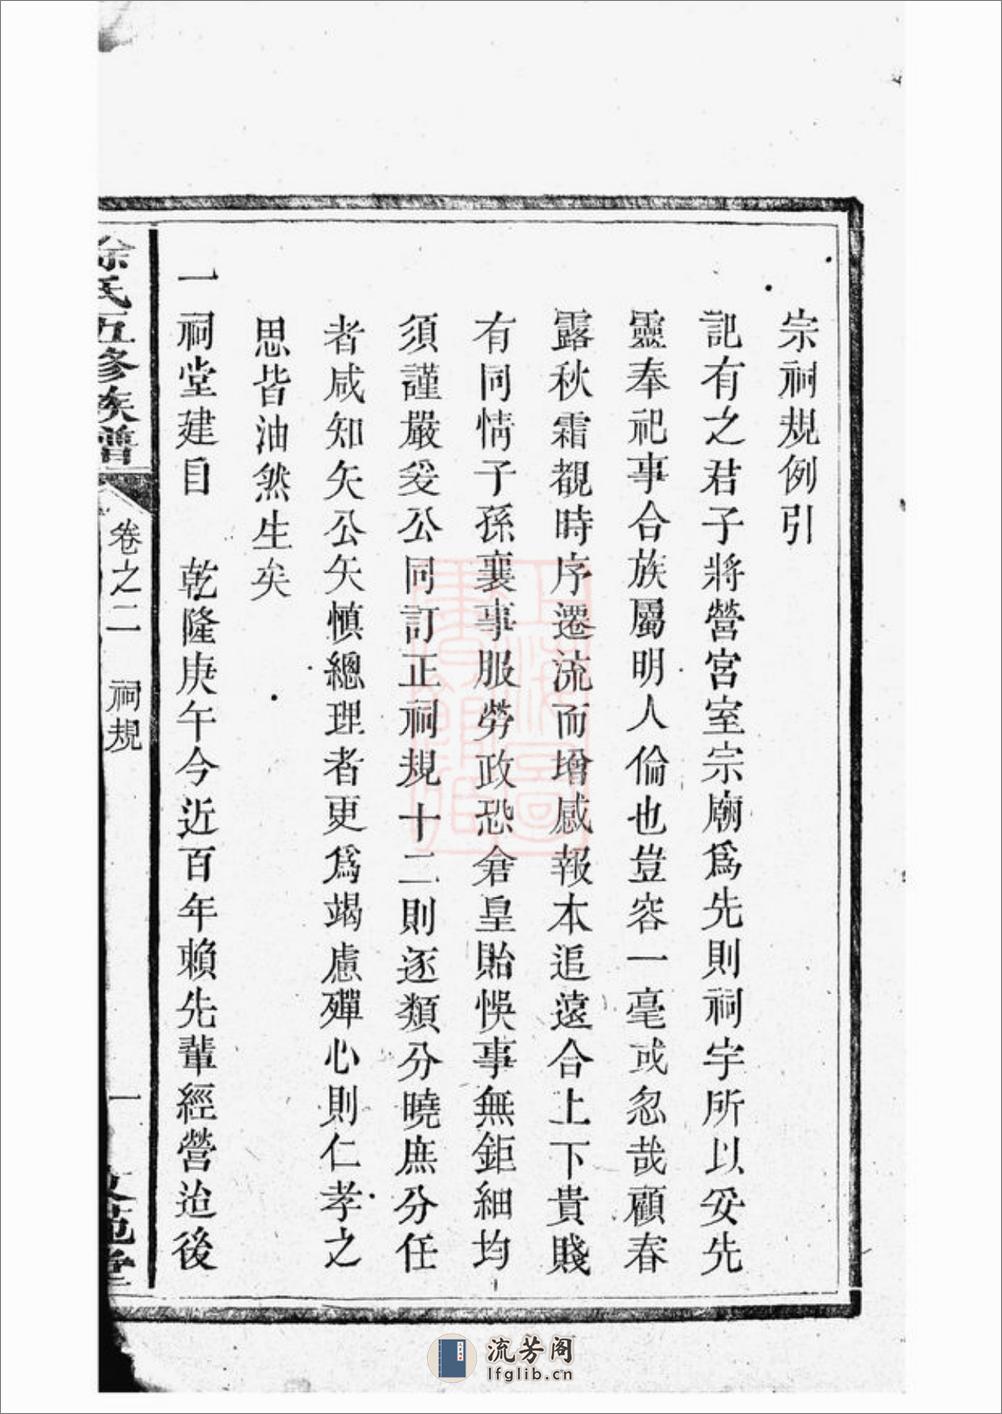 宗祠規例引
記有之君子將營宮室宗廟爲先則祠宇所以妥先
靈奉祀事合族屬明人倫也豈容一毫或忽哉顧春
露秋霜覩時序遷流而增感報本追遠合上下貴賤
有同情子孫襄事服勞政恐倉皇貽悞事無鉅細均
須謹嚴爰公同訂正祠規十二則逐類分曉庶分任
者咸知矢公矢慎總理者更爲竭慮殫心則仁孝之
思皆油然生矣
一祠堂建自 乾隆庚午今近百年賴先輩經營迨後
徐氏五修族譜
卷之二 祠規
一
堂
上海圖書館藏
流芳阁
lfglib.cn